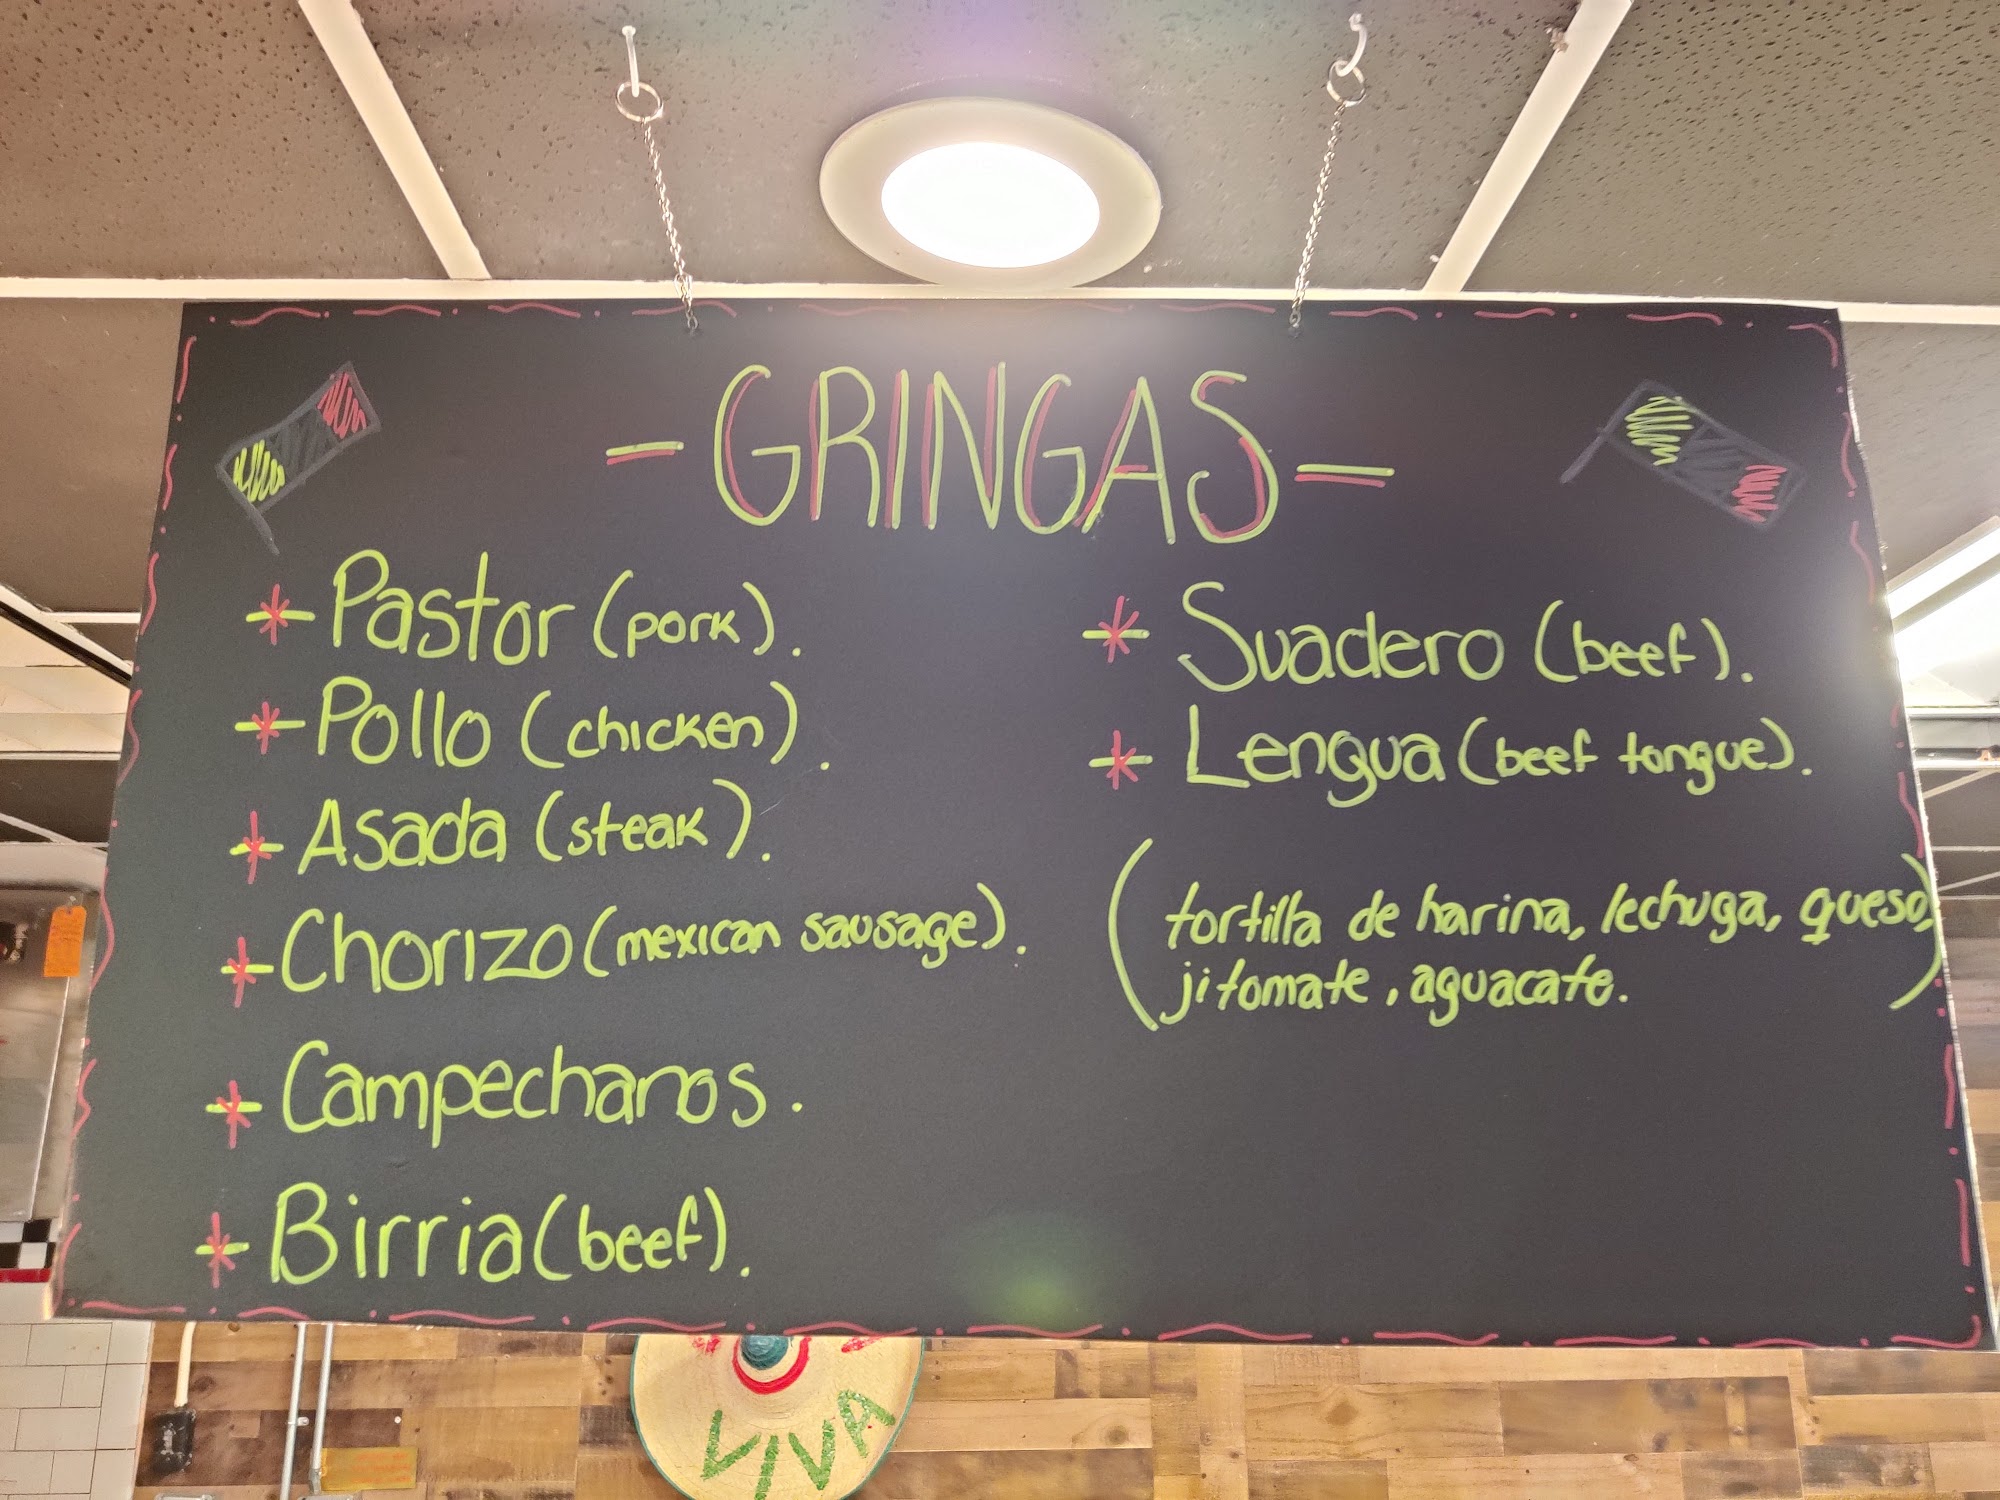 -GRINGAS-
* Pastor (pork).
* Pollo (chicken).
* Asada (steak).
* Chorizo (mexican sausage).
* Campechanos.
* Birria (beef).
* Suadero (beef).
* Lengua (beef tongue).
(tortilla de harina, lechuga, queso,
jitomate, aguacate.)
VIVA